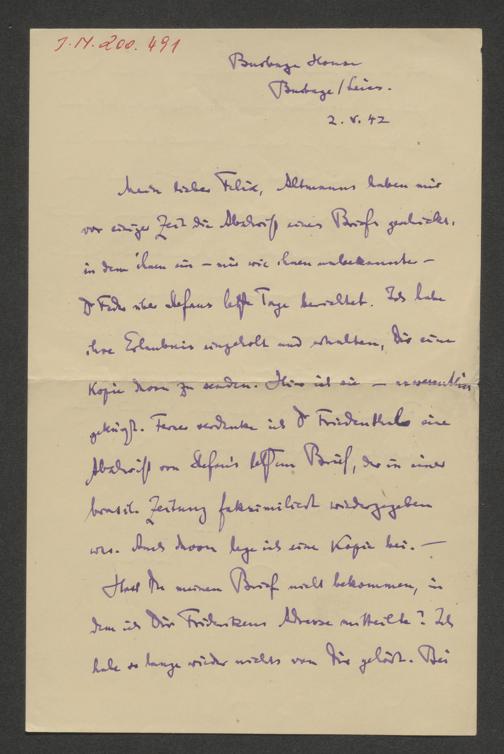 J.N. 200.491
Burbage House
Burbage / Leics.
2. V. 42
Mein lieber Felix, Altmanns haben mir
vor einiger Zeit die Abschrift eines Briefs geschickt,
in dem ihnen ein – mir wie ihnen unbekannter –
Dr Feder über Stefans letzte Tage berichtet. Ich habe
ihre Erlaubnis eingeholt und erhalten, Dir eine
Kopie davon zu senden. Hier ist sie – unwesentlich
gekürzt. Ferner verdanke ich Dr Friedenthal eine
Abschrift von Stefans letztem Brief, der in einer
brasil. Zeitung faksimiliert wiedergegeben
war. Auch davon lege ich eine Kopie bei. –
Hast Du meinen Brief nicht bekommen, in
dem ich Dir Friderikens Adresse mitteilte? Ich
habe so lange wieder nichts von Dir gehört. Bei